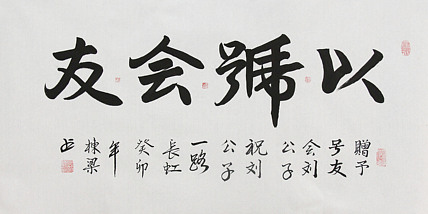 以號会友
贈予
号友
会刘
公子
祝刘
公子
一路
長虹
癸卯
年
棟梁
书